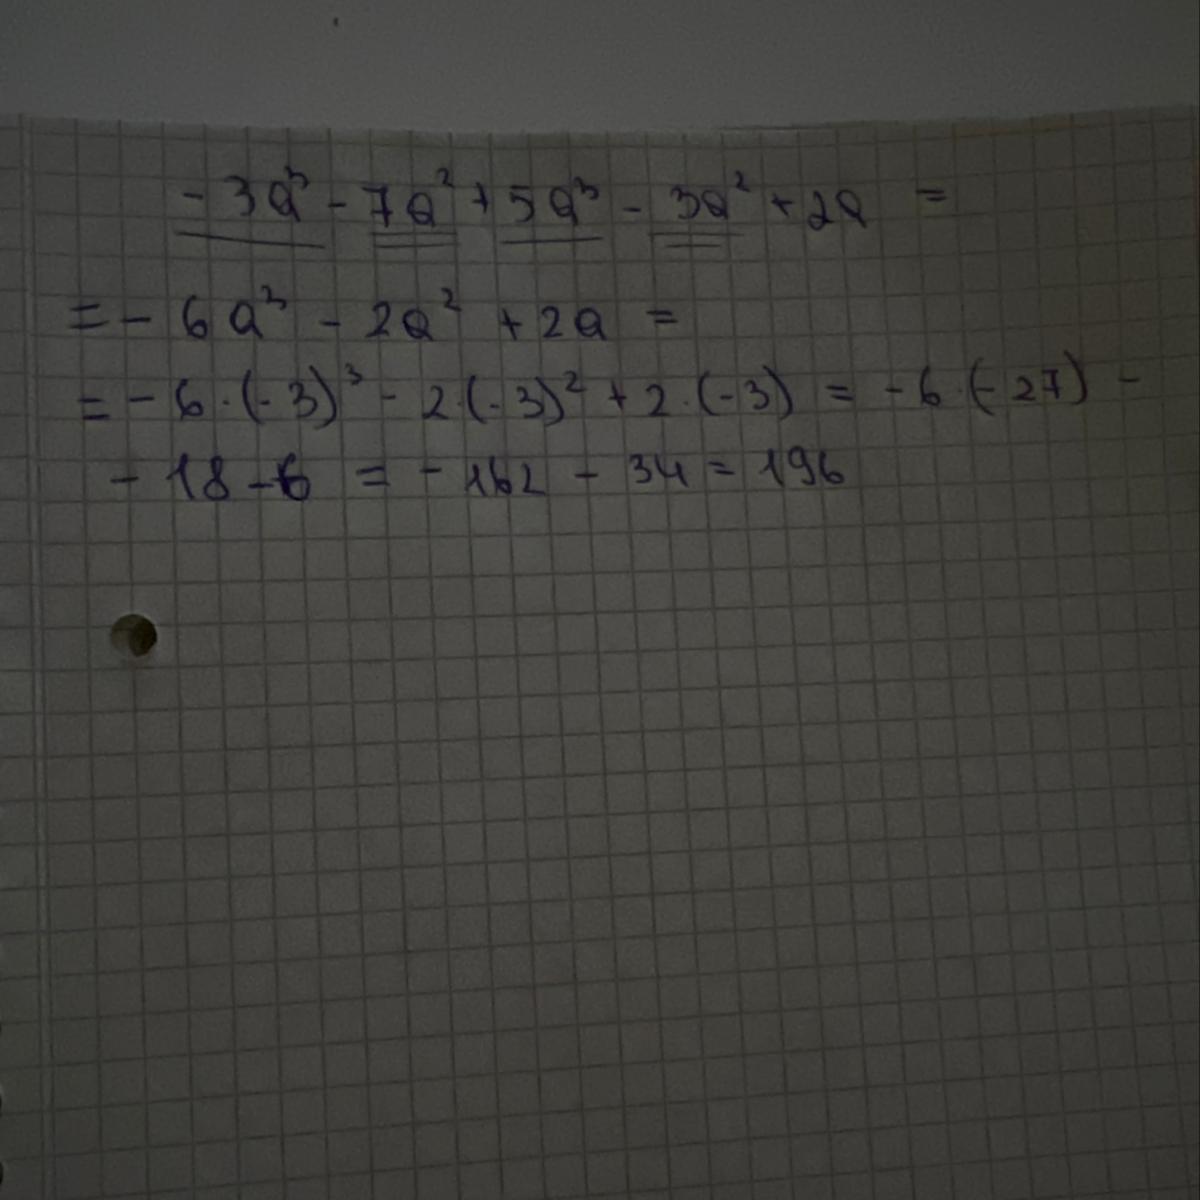 - 3a³ - 7a² + 5a³ - 3a² + 2a =
= - 6a³ - 2a² + 2a =
= - 6 · (- 3)³ - 2 · (- 3)² + 2 · (- 3) = - 6 · (- 27) -
- 18 - 6 = - 162 - 34 = 196